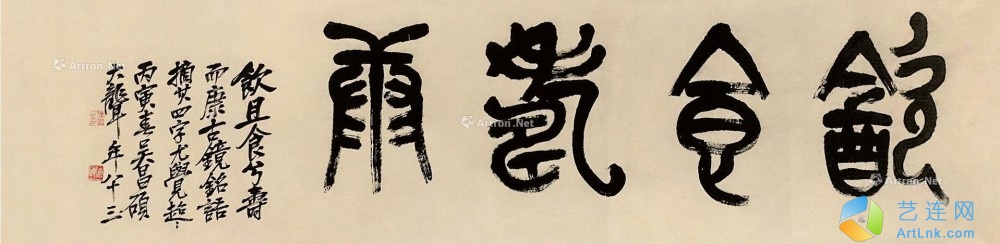 飲食壽康
飲且食兮壽
而康古鏡銘語
摘其四字尤覺超〻
丙寅春吳昌碩
大聾年八十三
Artron.Net
Artron.Net
Artron.Net
艺连网
ArtLnk.com